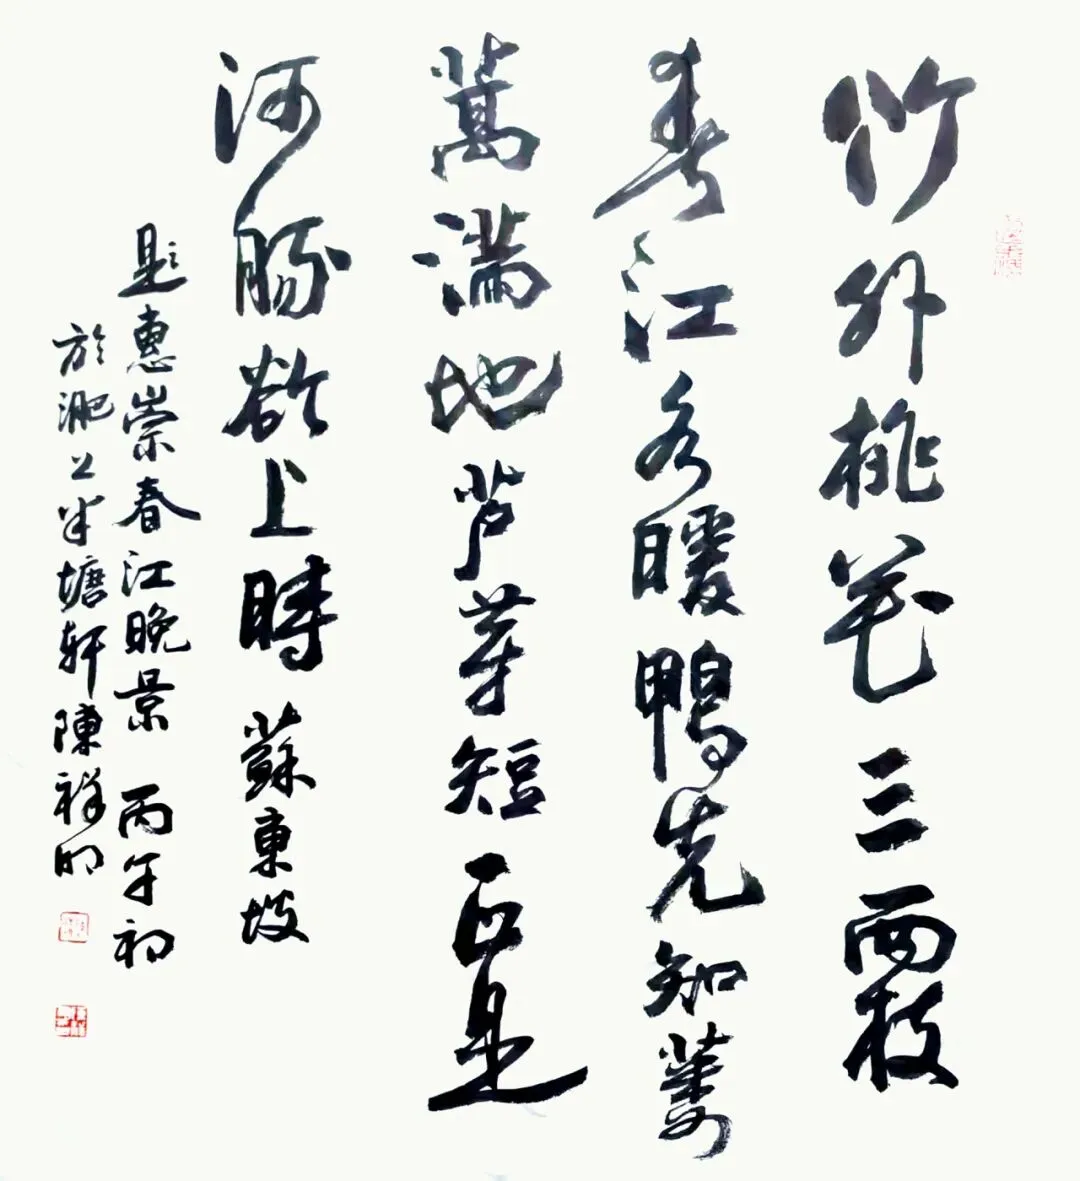 竹外桃花三两枝
春江水暖鸭先知蒌
蒿满地芦芽短正是
河豚欲上時蘇東坡
题惠崇春江晚景丙午初
於淝上半塘轩陳祥明